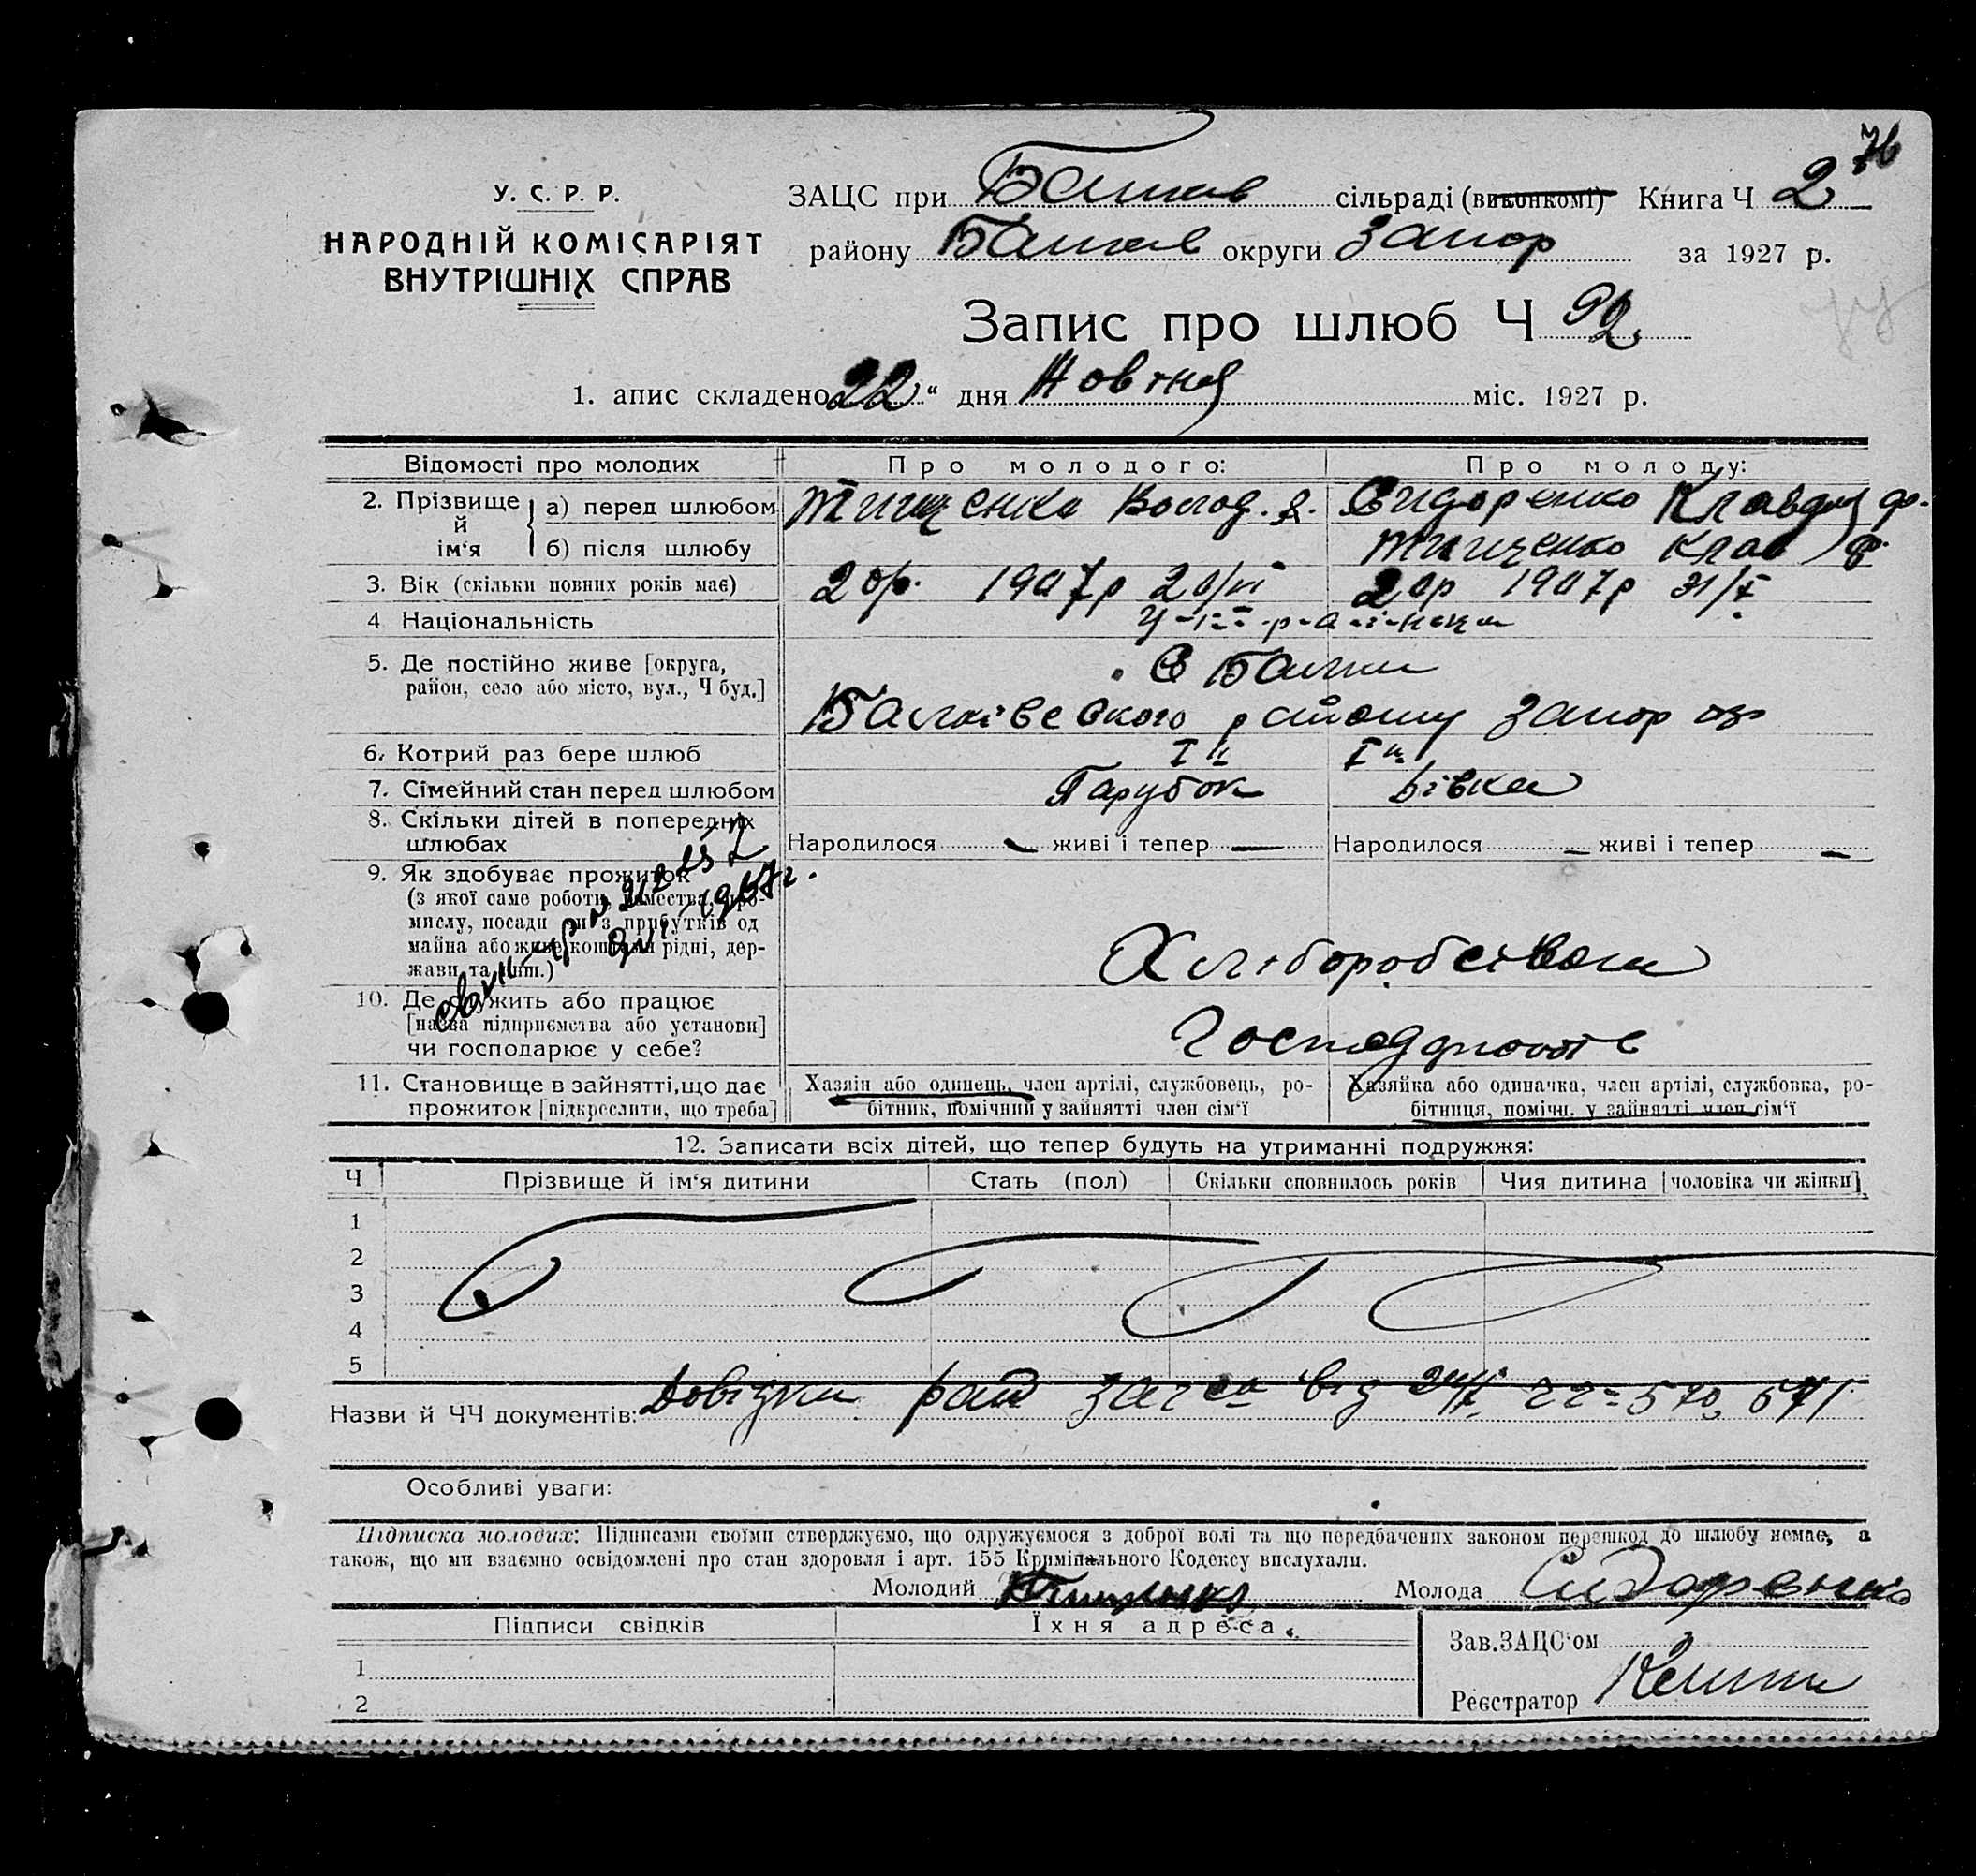 76
У. С. Р. Р.
НАРОДНІЙ КОМІСАРІЯТ
ВНУТРІШНІХ СПРАВ
ЗАЦС при Балків сільраді (виконкомі) Книга Ч 2
району Балків округи Запор за 1927 р.
Запис про шлюб Ч 92
1. апис складено 22 “ дня Жовтня міс. 1927 р.
Відомості про молодих Про молодого: Про молоду:
2. Прізвище й ім‘я
а) перед шлюбом Тищенко Волод. Сидоренко Клавдія Ф.
б) після шлюбу Тищенко Клав Ф.
3. Вік (скільки повних років має) 20р. 1907р 20/VI 20р 1907р 31/X
4 Національність Українська
5. Де постійно живе [округа, С Балки
район, село або місто, вул., Ч буд.]
Балківського району Запор окр
6. Котрий раз бере шлюб I й I й
7. Сімейний стан перед шлюбом Парубок Дівка
8. Скільки дітей в попередніх
шлюбах Народилося — живі і тепер — Народилося — живі і тепер —
9. Як здобуває прожиток
(з якої саме роботи, ремества, про-
мислу, посади чи з прибутків од
майна або живе коштами рідні, дер-
жави та інш.) Хліборобством
10. Де служить або працює
[назва підприємства або установи]
чи господарює у себе? Господарюють
11. Становище в зайнятті, що дає Хазяїн або одинець, член артілі, службовець, ро- Хазяйка або одиначка, член артілі, службовка, ро-
прожиток [підкреслити, що треба] бітник, помічний у зайнятті член сім‘ї бітниця, помічн. у зайнятті член сім‘ї
12. Записати всіх дітей, що тепер будуть на утриманні подружжя:
Ч Прізвище й ім‘я дитини Стать (пол) Скільки сповнилось років Чия дитина [чоловіка чи жінки]
1
2
3
4
5
Назви й ЧЧ документів: Довідки рай загса від 570, 571
Особливі уваги:
Підписка молодих: Підписами своїми стверджуємо, що одружуємося з доброї волі та що передбачених законом перешкод до шлюбу немає, а
також, що ми взаємно освідомлені про стан здоровля і арт. 155 Кримінального Кодексу вислухали.
Молодий Тищенко Молода Сидоренко
Підписи свідків Їхня адреса.
1
2
Зав. ЗАЦС‘ом
Реєстратор